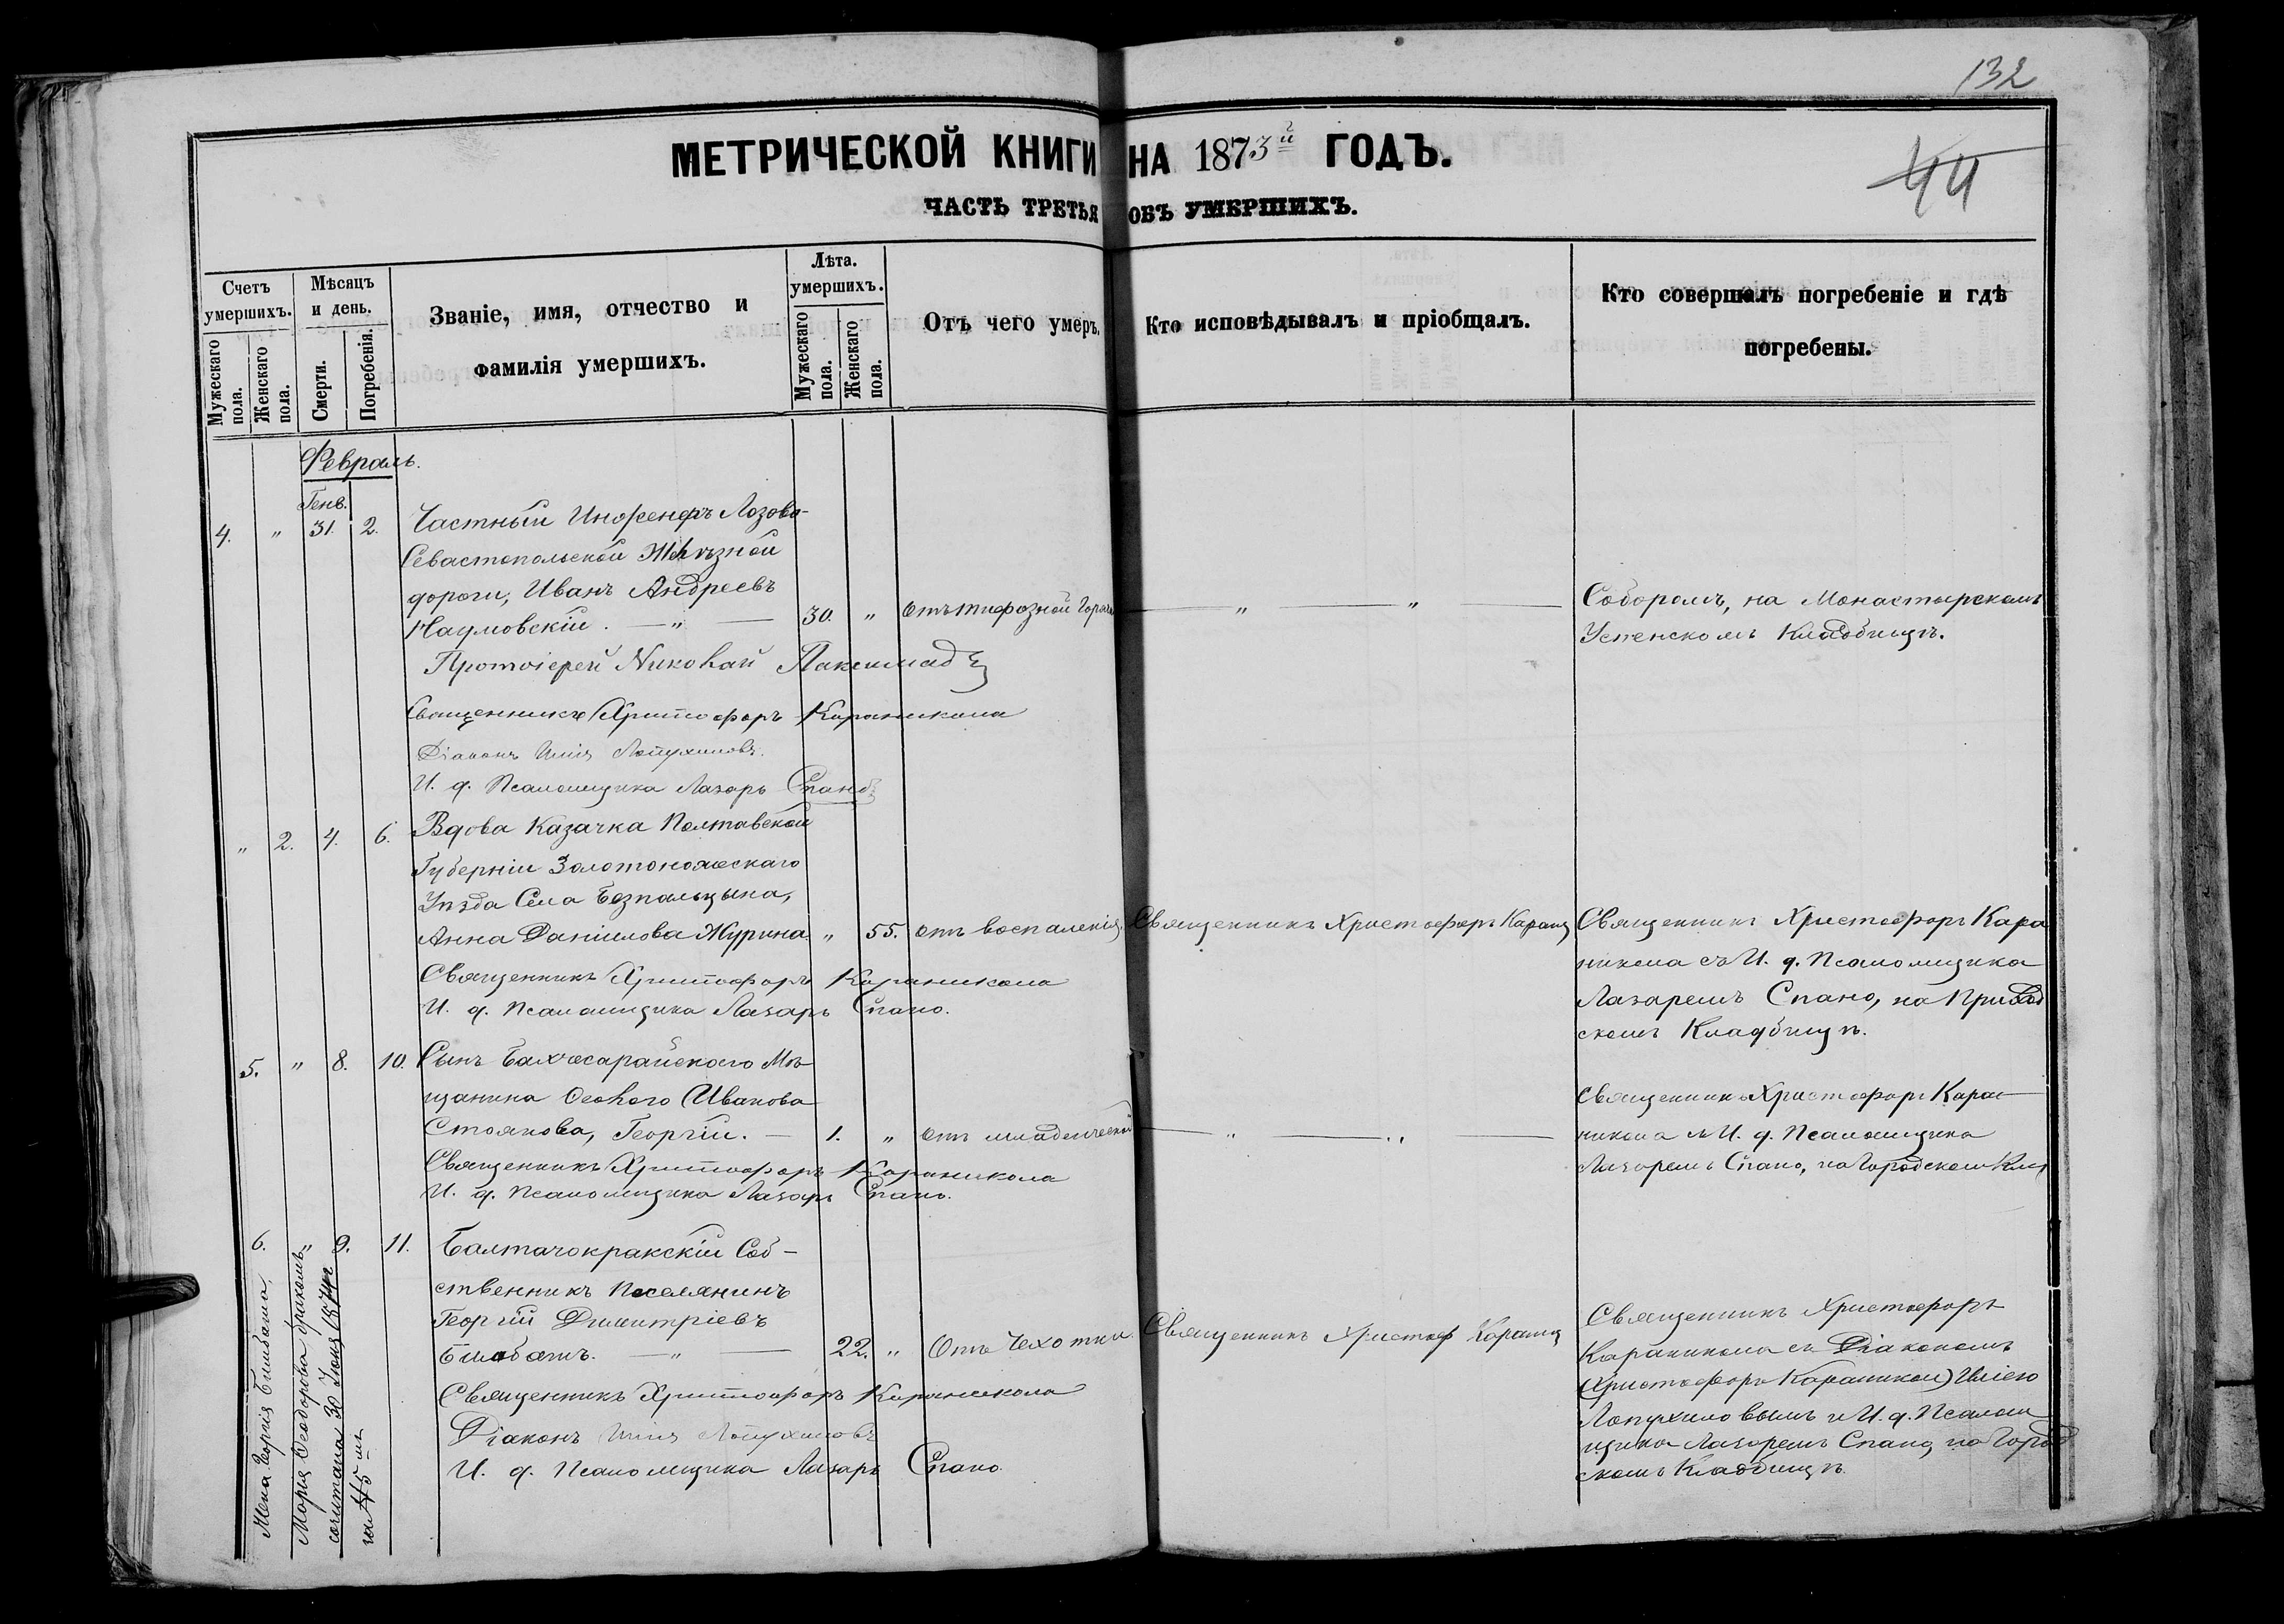 132
44
МЕТРИЧЕСКОЙ КНИГИ НА 1873й ГОДЪ.
ЧАСТЬ ТРЕТЬЯ ОБЪ УМЕРШИХЪ.
Счетъ умершихъ.
Мужескаго пола.
Женскаго пола.
Мѣсяцъ и день.
Смерти.
Погребенія.
Званіе, имя, отчество и
фамилія умершихъ.
Лѣта. умершихъ.
Мужескаго пола.
Женскаго пола.
Отъ чего умеръ.
Кто исповѣдывалъ и пріобщалъ.
Кто совершалъ погребеніе и гдѣ
погребены.
Февраль.
Генв.
4. " 31. 2. Частный Инженеръ Лозово-
Севастопольской Желѣзной
дороги, Иванъ Андреевъ
Наумовскій. — " — 30. " Отъ тифозной Горяч — " — " —
Соборомъ, на Монастырскомъ
Успенскомъ Кладбищѣ.
Протоіерей Николай Паксимад
Священникъ Христофоръ Караникола
Діаконъ Илія Лопухиновъ.
И. д. Псаломщика Лазарь Спано
" 2. 4. 6. Вдова Казачка Полтавской
Губерніи Золотоножскаго
Уѣзда Села Безпальцына,
Анна Даніилова Журина " 55. Отъ воспаленія. Священникъ Христофоръ Караник
Священникъ Христофоръ Кара
никола съ И. д. Псаломщика
Лазаремъ Спано, на Приход
скомъ Кладбищѣ.
Священникъ Христофоръ Караникола
И. д. Псаломщика Лазарь Спано.
5. " 8. 10. Сынъ Бахчесарайскаго Мѣ
щанина Ивакова
Стоянова, Георгій. — 1. " отъ младенческой — " — " —
Священникъ Христофоръ Кара
никола съ И. д. Псаломщика
Лазаремъ Спано, на Городском Кла
Священникъ Христофоръ Караникола
И. д. Псаломщика Лазарь Спано.
6. " 9. 11. Балтачокракскій Соб-
ственникъ Поселянинъ
Георгій Димитріевъ
Бишбашъ. — " — 22. " Отъ Чехотки. Священникъ Христоф Караник
Священникъ Христофоръ
Караникола съ Діакономъ
(Христофоръ Караникол) Иліею
Лопухиновымъ и И. д. Псалом
щика Лазаремъ Спано, на Город
скомъ Кладбищѣ.
Священникъ Христофоръ Караникола
Діаконъ Илія Лопухиновъ
И. д. Псаломщика Лазарь Спано.
Жена Георгія Бишбаша,
Марія Ѳеодорова бракомъ
сочитана 30 1874г